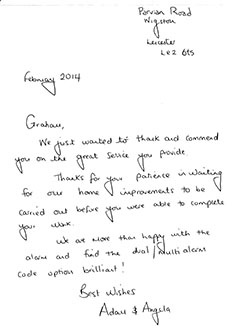 Road
Wigston
Leicester
LE2 6TS
February 2014
Graham,
We just wanted to thank and commend
you on the great service you provide.
Thanks for your patience in waiting
for our home improvements to be
carried out before you were able to complete
your work.
We are more than happy with the
alarm and find the dual/multi alarm
code option brilliant!
Best Wishes
Adam & Angela